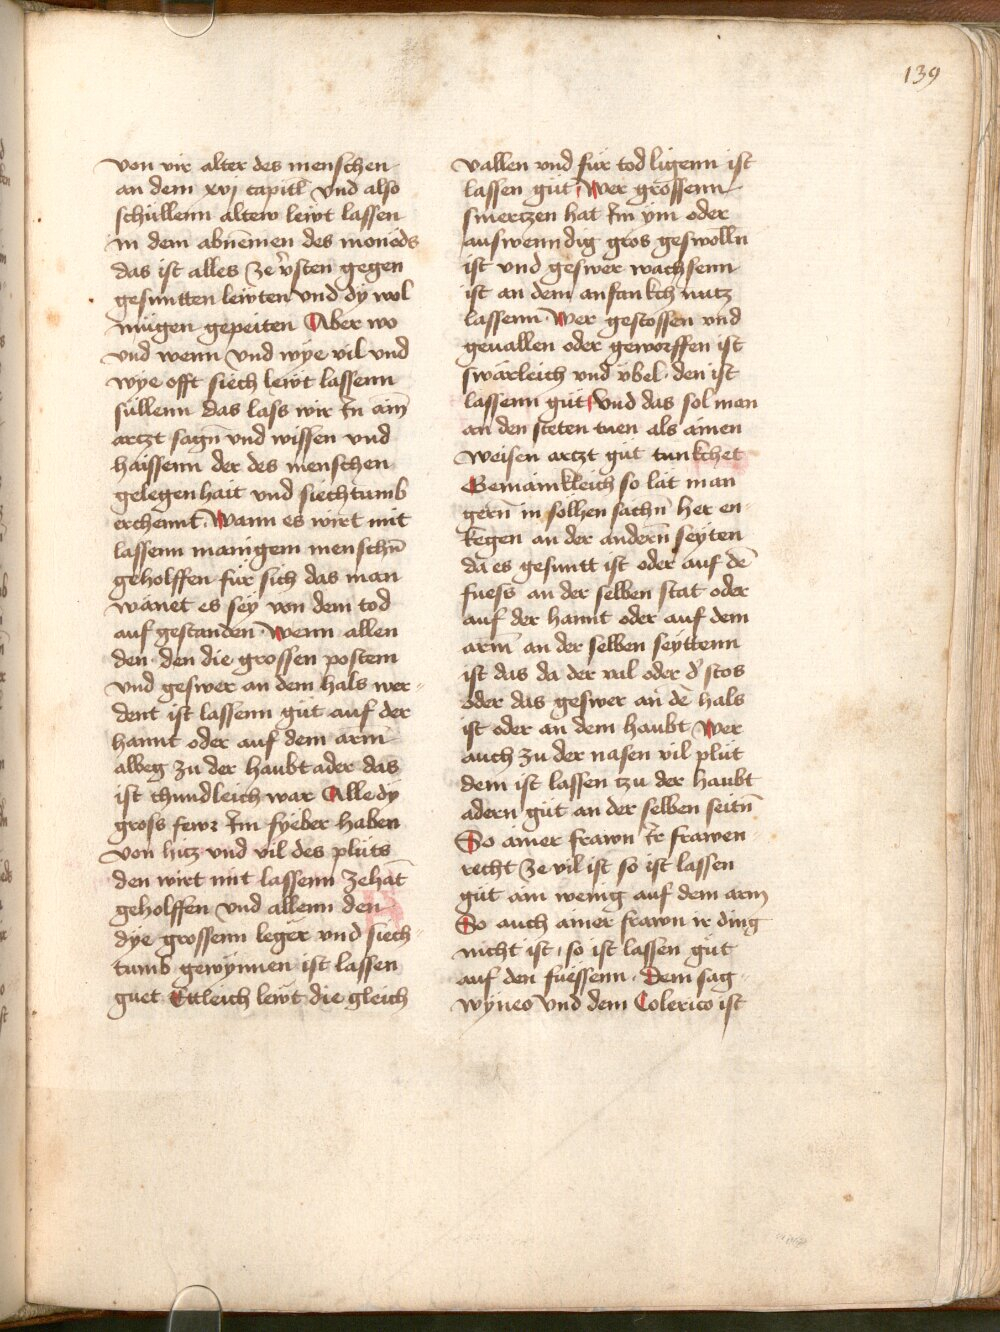 139
von vir alter des menschen
an dem xvj capitl vnd also
schüllenn altew lewt lassen
in dem abnemen des moneds
das ist alles ze vˀsten gegen
gesuntten lewten vnd dy wol
mügen gepeiten Aber wo
vnd wenn vnd wye vil vnd
wye offt siech lewt lassenn
süllenn das lass wir Jn aim̄
arczt sagn̄ vnd wissen vnd
haissenn der des menschen
gelegenhait vnd siechtumb
erchennt. Wann es wirt mit
lassenn manigem menschn̄
geholffen für sich das man
wänet es sey von dem tod
auf gestanden. Wenn allen
den den die grossen postem
vnd geswer an dem hals wer-
dent ist lassenn güt auf der
hannt oder auf dem arm
albeg zu der haubt ader das
ist chundleich war Alle dy
gross fewr Jm fyeber haben
von hicz vnd vil des plüts
den wirt mit lassenn zehāt
geholffen vnd allenn den
dye grossenn leger vnd siech-
tumb gewynnen ist lassen
guet Ettleich lewt die gleich
vallen vnd für tod ligenn ist
lassen güt. Wer grossenn
smerczen hat Jm ynn oder
auswenndig gros geswolln
ist vnd geswer wachsenn
ist an dem anfankch nucz
lassenn. Wer gestossen vnd
geuallen oder geworffen ist
swärleich vnd vbel. den ist
lassenn güt vnd das sol man
an den steten tuen als ainen
weisen arczt güt tunkchet
Gemainkleich so lät man
gern̄ in solhen sachn̄ her en-
kegen an der andern̄ seyten
da es gesuntt ist oder auf dē
fuess an der selben stat oder
auf der hannt oder auf dem
arm̄ an der selben seyttenn
ist das da der val oder dˀ stos
oder das geswer an dē hals
ist oder an dem haubt Wer
auch zu der nasen vil plüt
dem ist lassen czu der haubt
adern güt an der selben seitn̄
So ainer frawn Jr frawen
recht ze vil ist so ist lassen
güt ain wenig auf dem arm
So auch ainer frawn ir ding
nicht ist, so ist lassen güt
auf den fuessenn. Dem sag-
wyneo vnd dem Colerico ist